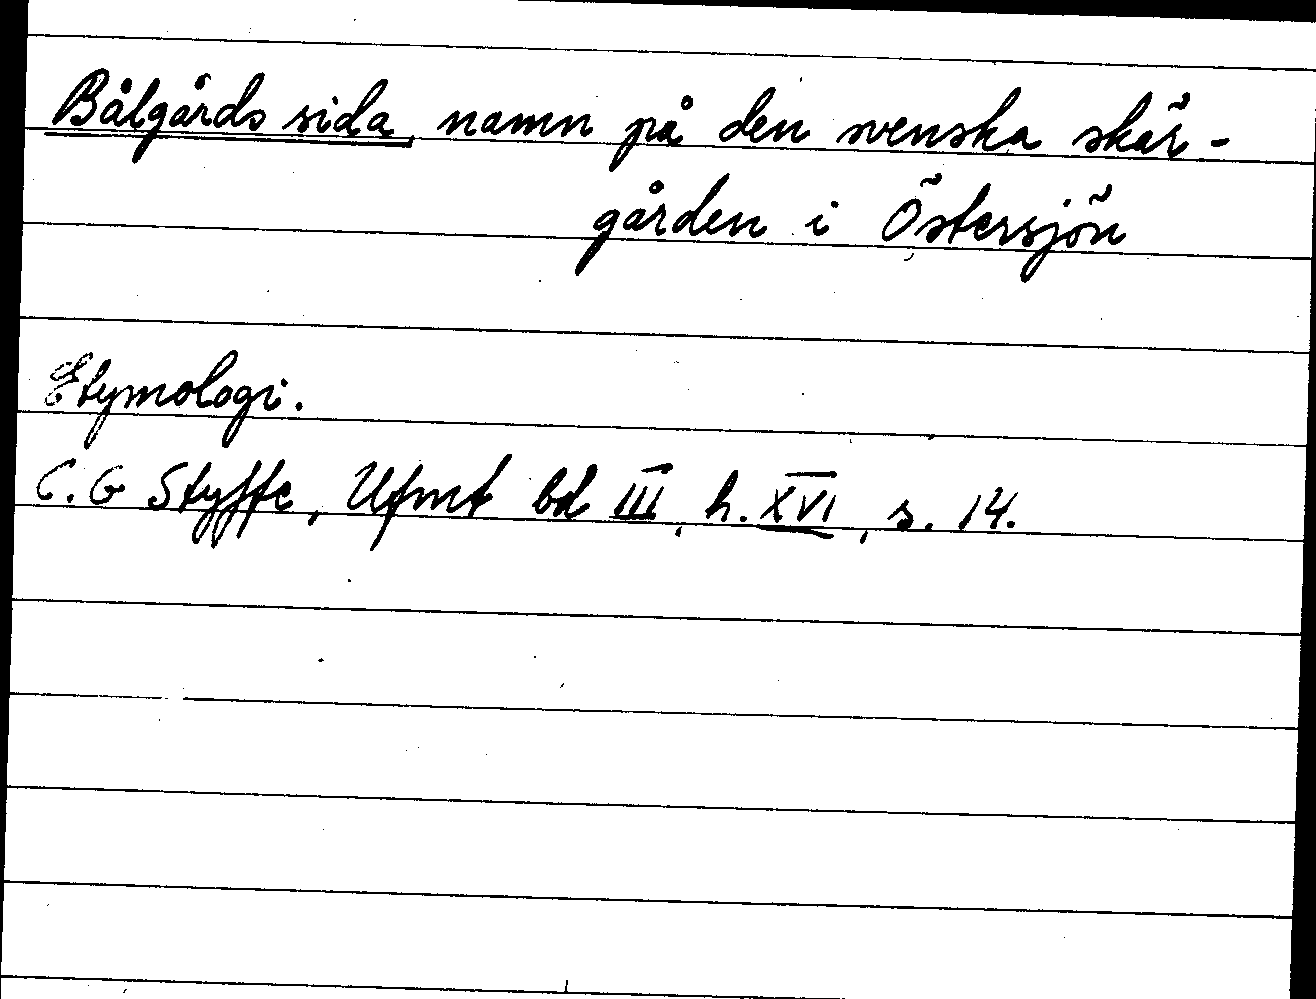 Bålgårds sida, namn på den svenska skär-
gården i Östersjön
Etymologi.
C. G Styffe, Ufmt bd III, h. XVI, s. 14.